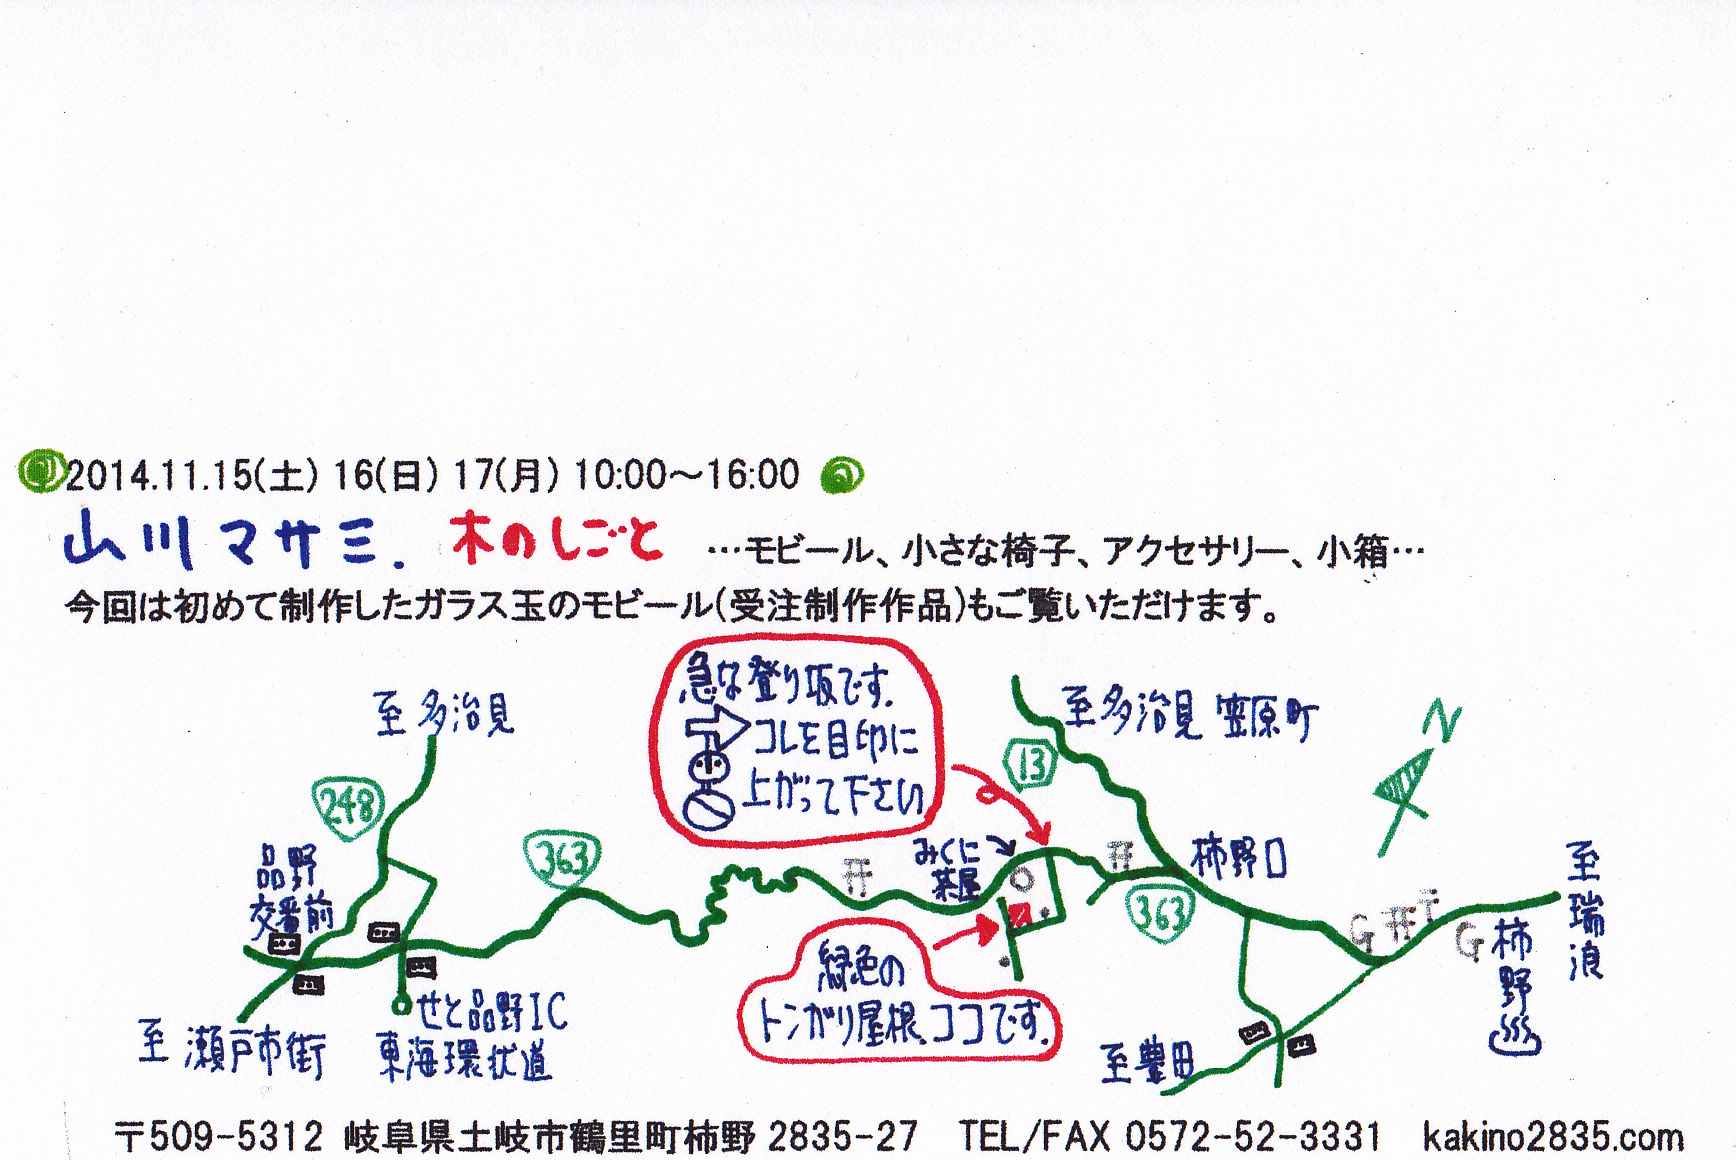 2014.11.15(土) 16(日) 17(月) 10:00～16:00
山川マサミ. 木のしごと …モビール、小さな椅子、アクセサリー、小箱…
今回は初めて制作したガラス玉のモビール(受注制作作品)もご覧いただけます。
急な登り坂です.
コレを目印に
上がって下さい
至多治見
至多治見 笠原町
N
13
248
363
品野
交番前
みくに
茶屋
柿野口
363
至瑞浪
G
G
柿野
緑色の
トンガリ屋根、ココです.
せと品野IC
東海環状道
至瀬戸市街
至豊田
〒509-5312 岐阜県土岐市鶴里町柿野 2835-27 TEL/FAX 0572-52-3331 kakino2835.com